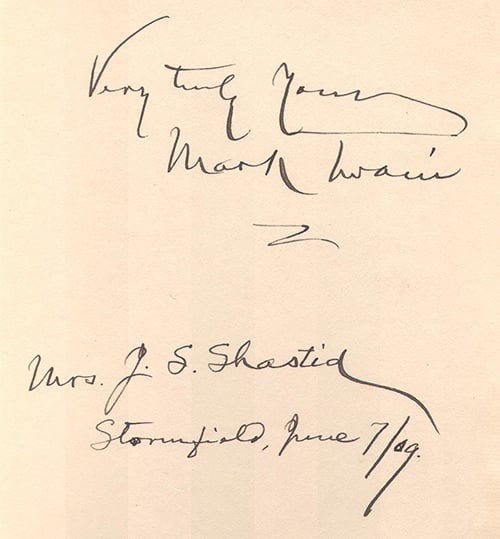 Very truly Yours
Mark Twain
Mrs. J. S. Shastid
Stormfield, June 7/09.